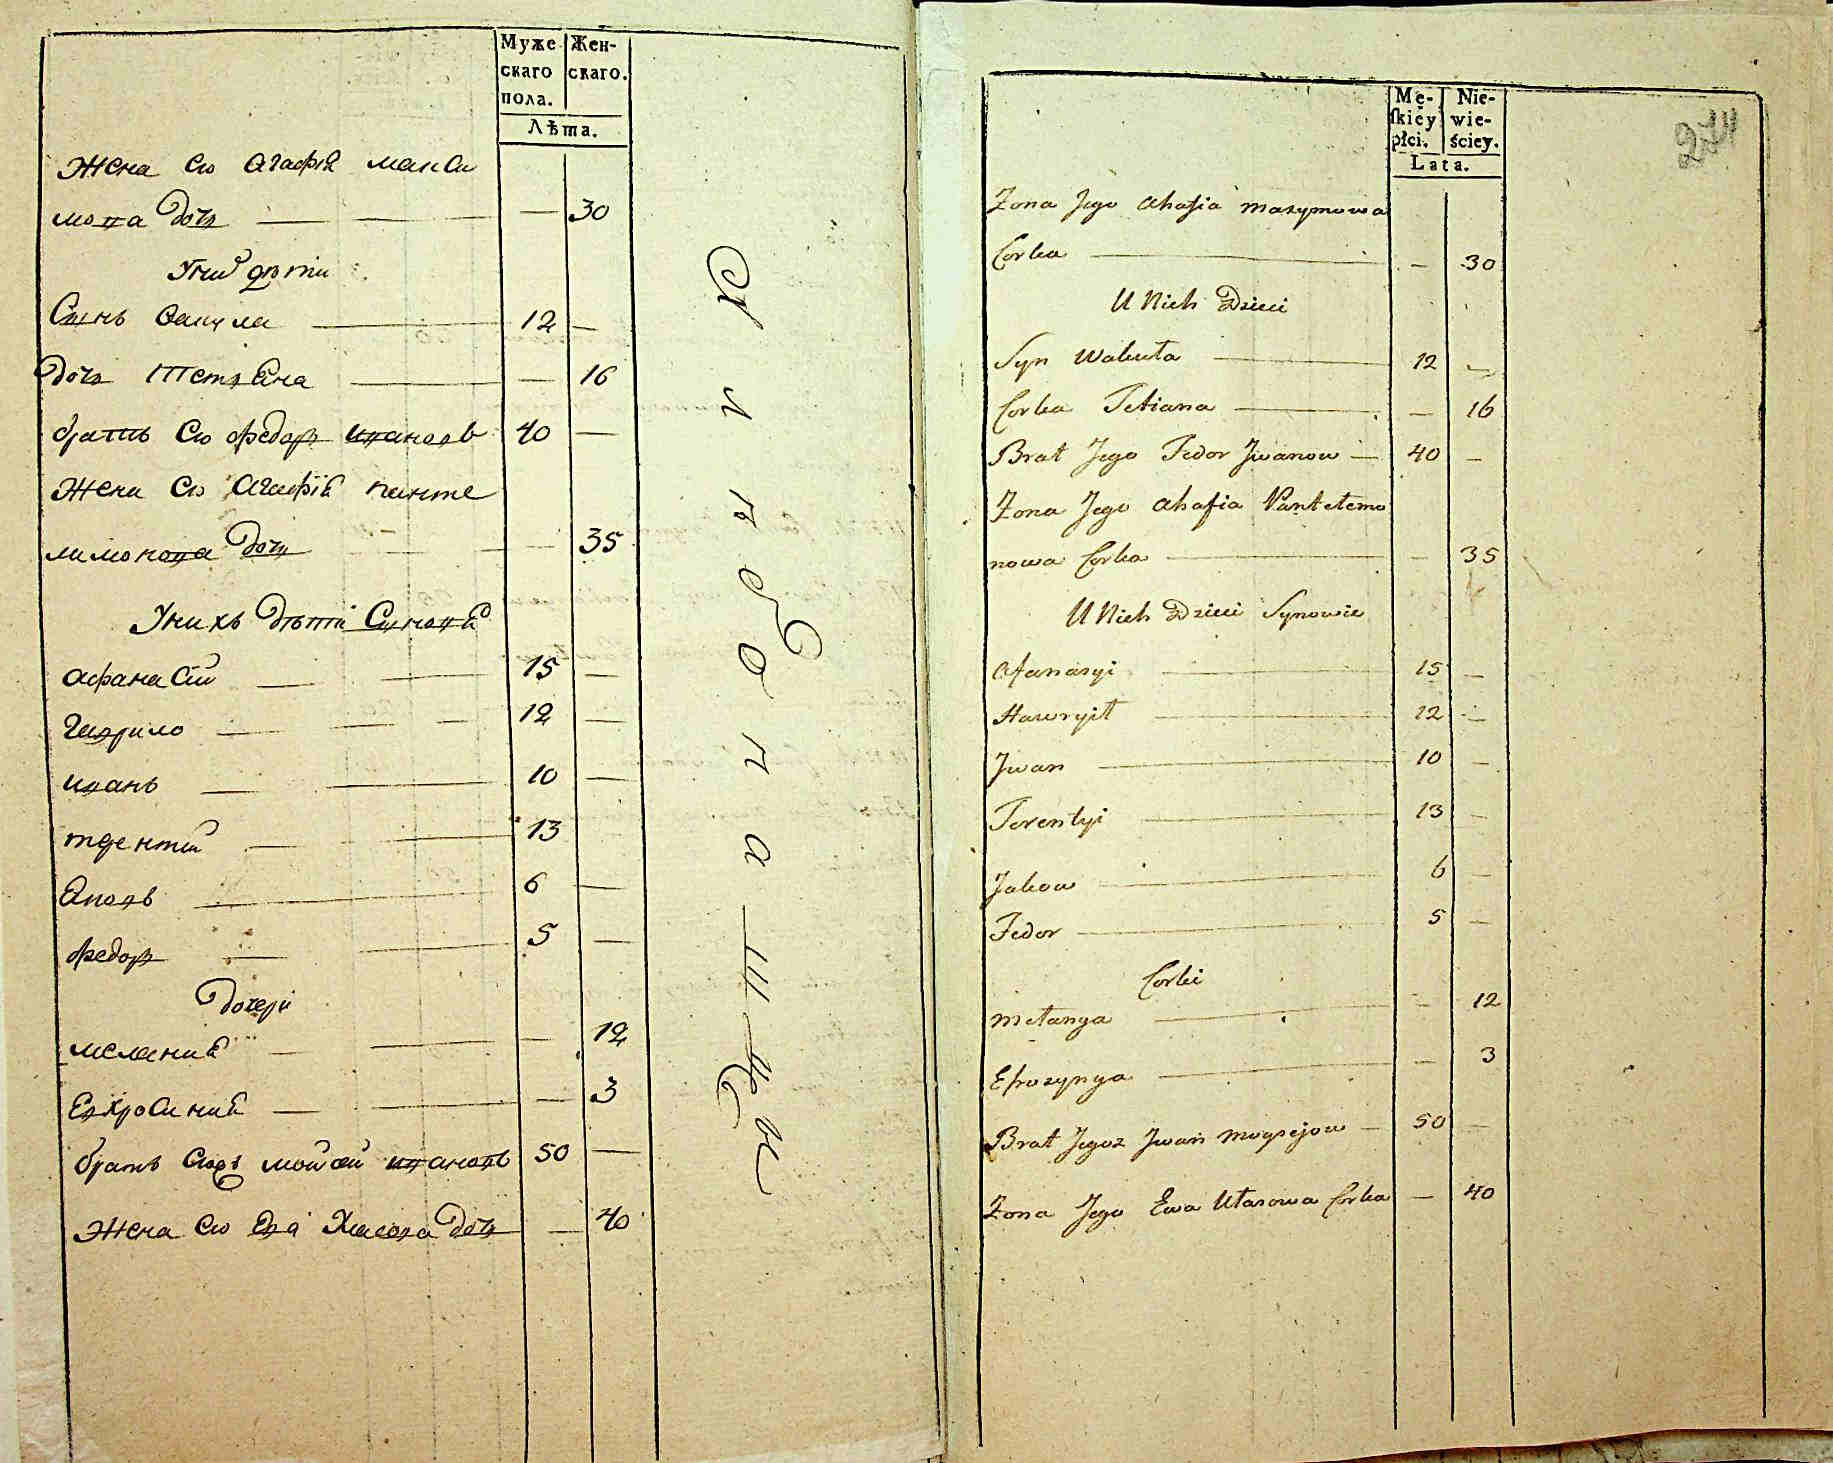 Муже
скаго
пола.
Жен-
скаго.
Лѣта.
Жена ево агафия макси
мова дочь 30
У ни дѣти
Сынъ Вакула 12
Дочь Тетяна 16
братъ ево федор ивановъ 40
Жена ево агафия панте
лимонова дочь 35
У нихъ дѣти Синови
афанасий 15
Гаврило 12
иванъ 10
терентий 13
Яковъ 6
федор 5
дочери
мелания 12
Евхросиния 3
братъ мойсей ивановъ 50
Жена ево Ева Дочь 40
Mę-
skiéy
płci.
Nie-
wie-
ściey.
Lata.
Zona Jego Ahafia Maxymowa
Corka 30
U Nich Dzieci
Syn Wakuła 12
Corka Tetiana 16
Brat Jego Fedor Jwanow 40
Zona Jego Ahafia Pantelemo
nowa Corka 35
U Nich Dzieci Synowie
Afanasyi 15
Hawryił 12
Jwan 10
Terentyi 13
Jakow 6
Fedor 5
Corki
Melanya 12
Efrozynya 3
Brat Jegoz Jwan Moysejow 50
Zona Jego Ewa Ułasowa Corka 40